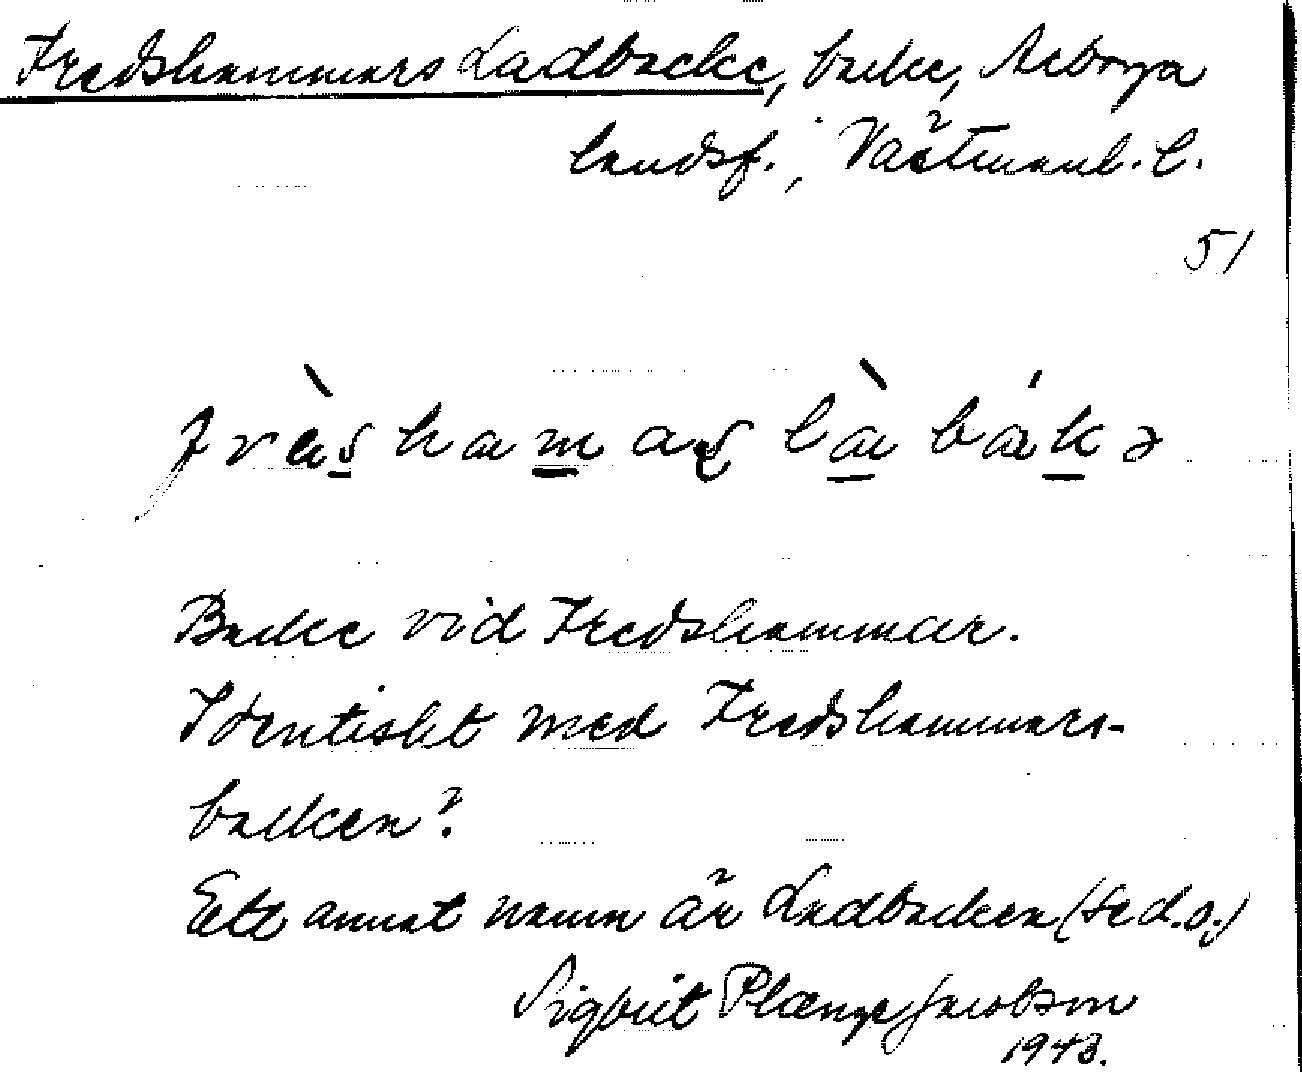 Fredshammars Ladbacke, backe, Arboga
landsf., Västmanl. l.
51
frὲshamaş là bákə
Backe vid Fredshammar.
Identiskt med Fredshammars-
backen?
Ett annat namn är Ladbacken (se d.o.)
Sigbrit Plænge Jacobson
1943.